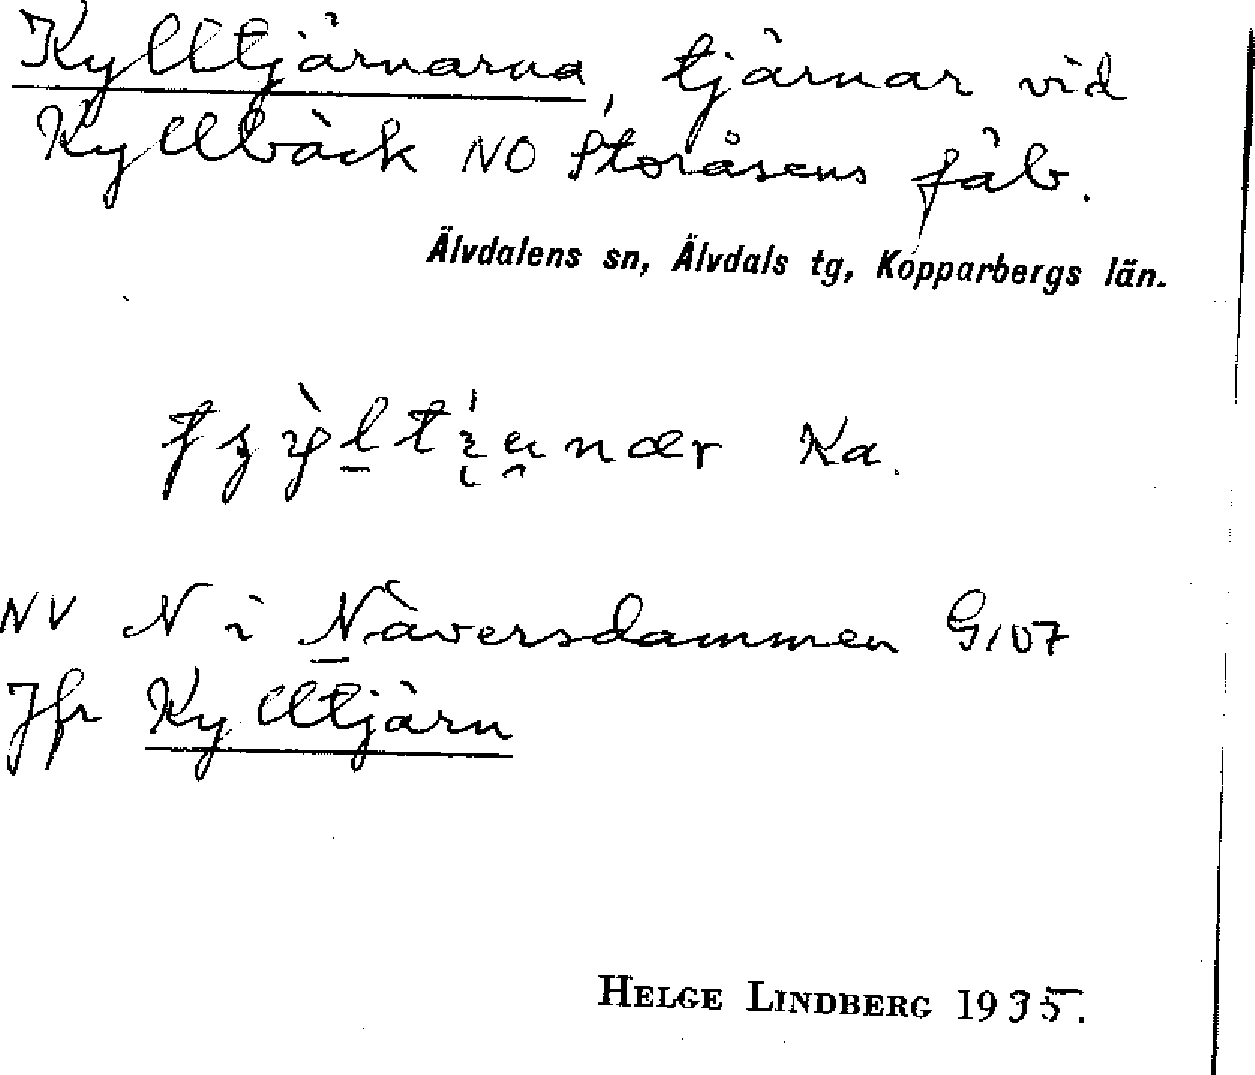 Kylltjärnarna, tjärnar vid
Kyllbäck NO Storåsens fäb.
Älvdalens sn, Älvdals tg, Kopparbergs län.
Ka.
NV N i Näversdammen G107
Jfr Kylltjärn
HELGE LINDBERG 1935.